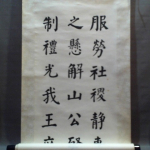 服勞社稷靜專
之懸解山公啓
制禮光我王